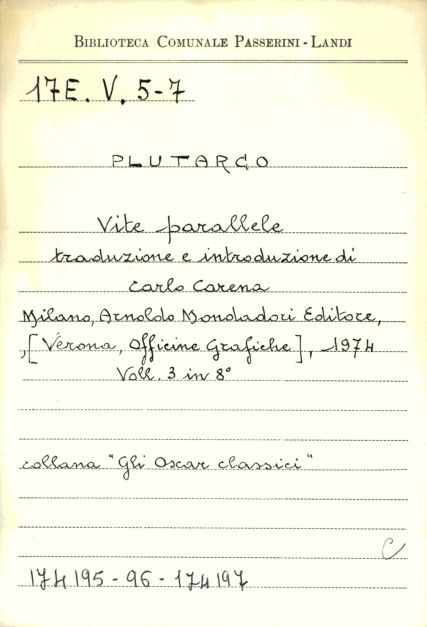 BIBLIOTECA COMUNALE PASSERINI - LANDI
17E. V. 5-7
PLUTARCO
Vite parallele
traduzione e introduzione di
Carlo Carena
Milano, Arnoldo Mondadori Editore,
,[Verona, Officine Grafiche], 1974
Voll. 3 in 8°
collana "Gli Oscar classici"
C
174195 - 96 - 174197